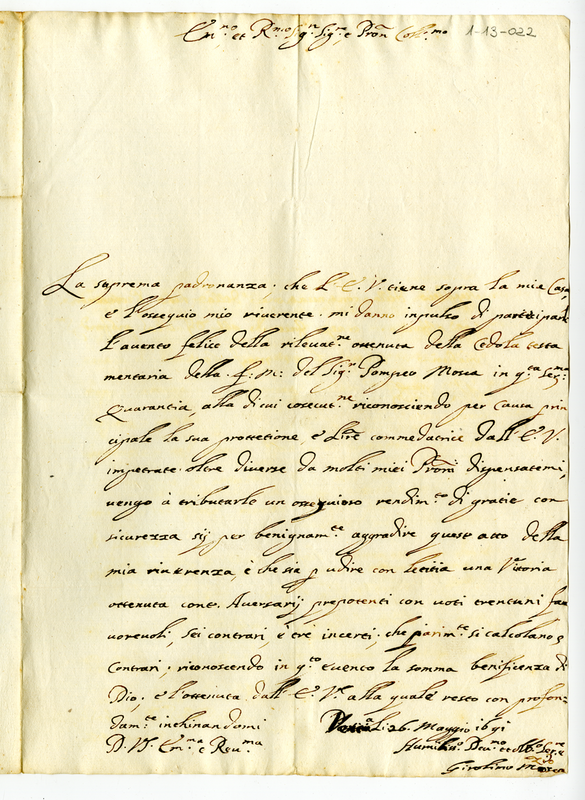 Em.no et R.mo Sig.r Sig.re e Pron Coll.mo 1-13-022
La suprema padronanza, che l'E. V. tiene sopra la mia Casa,
e l'ossequio mio riverente mi danno inpulso di partecipare
l'avento felice della rilevat.ne ottenuta della Cedola testa
mentaria della f: M: del Sig.r Pompeo Mosca in q.ta Ser.ma
Quarantia, alla di cui cosecut.ne riconosciendo per causa prin
cipale la sua prottetione e lire commedatrice dall'E. V.
impetrate oltre diverse da molti miei Proni dispensatemi,
vengo à tributarle un ossequioso rendim.to di gratie con
sicurezza sij per benignam.te aggradire quest atto della
mia riverenza, è che sia p udire con letitia una Vitoria
ottenuta cont. Aversarij prepotenti con voti trentuni fa
uorevoli, sei contrari è tré incerti, che parim.te si calcolano p
contrari, riconoscendo in q.to evenco la somma benificenza di
Dio, e l'ottenuta dall'E. V. alla quale resto con profon
dam.te inchinandomi
Li 26. Maggio 1691
D. V. Em.ma e Reu.ma
Humiliss.o Deu.mo et Obb.o Ser.re
Girolimo Mosca